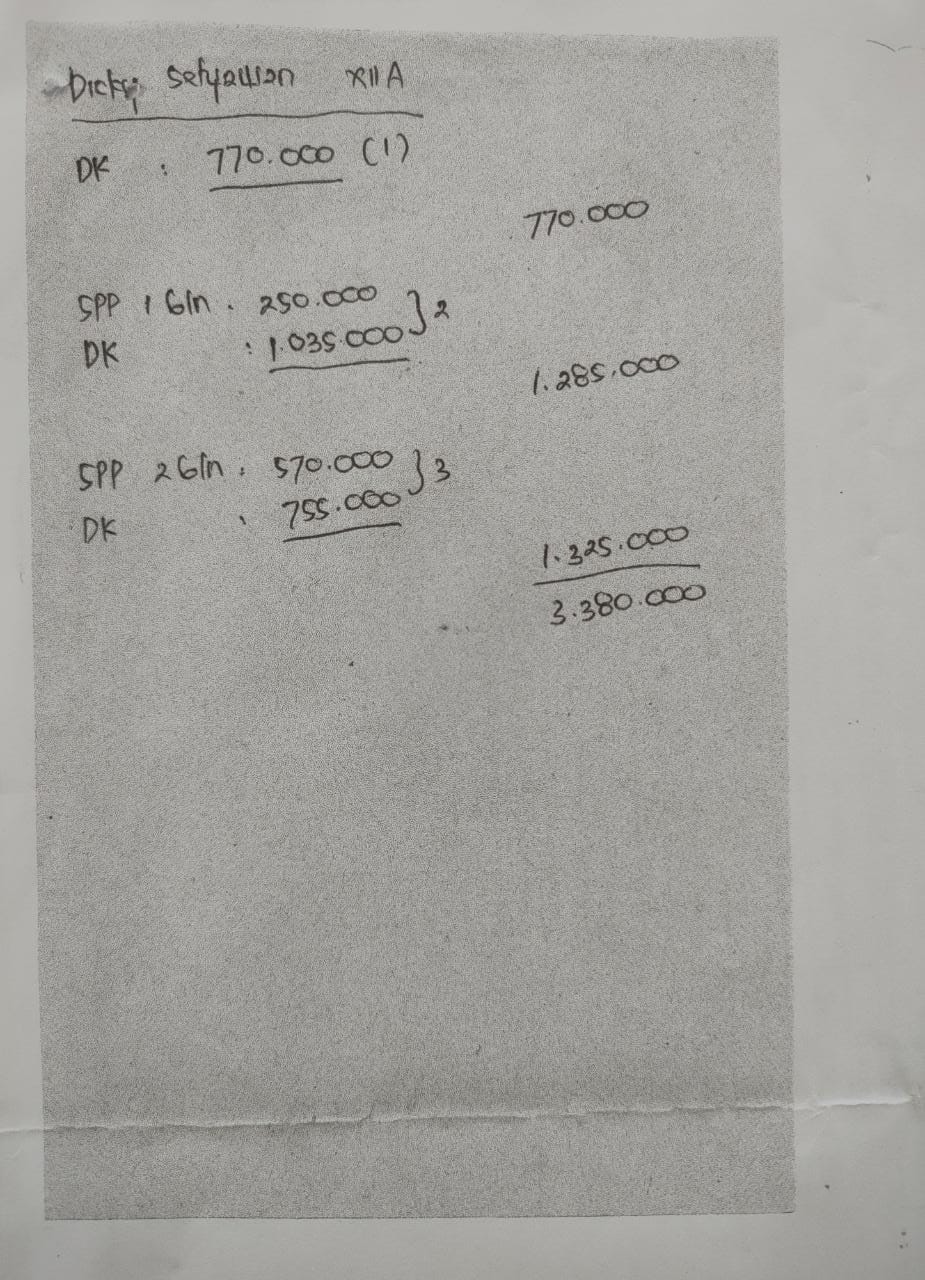 Dicky Setyawan XII A
DK : 770.000 (1)
770.000
SPP 1 bln . 250.000 } 2
DK : 1.035.000
1.285.000
SPP 2 bln : 570.000 } 3
DK : 755.000
1.325.000
3.380.000